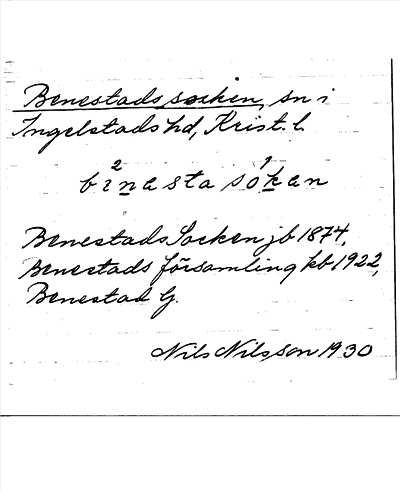 Benestads socken, sn i
Ingelstads hd, Krist. l.
2 1
bɪnasta sokan
Benestads Socken jb 1874,
Benestads församling kb 1922,
Benestad G.
Nils Nilsson 1930